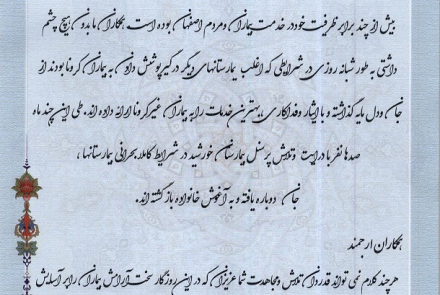 بیش از چند برابر ظرفیت خود در خدمت بیماران و مردم اصفهان بوده است. همکاران ما بدون هیچ چشم
داشتی به طور شبانه روزی در شرایطی که اغلب بیمارستانهای دیگر درگیر پوشش دادن به بیماران کرونا بودند از
جان و دل مایه گذاشته و با ایثار و فداکاری، بهترین خدمات را به بیماران غیر کرونا ارائه داده اند. طی این چند ماه
صدها نفر با درایت و تلاش پرسنل بیمارستان خورشید در شرایط کاملا بحرانی بیمارستانها،
جان دوباره یافته و به آغوش خانواده بازگشته اند.
همکاران ارجمند
هرچند کلام نمی تواند قدردان تلاش و مجاهدت شما عزیزان که در این روزگار سخت آرامش بیماران را بر آسایش